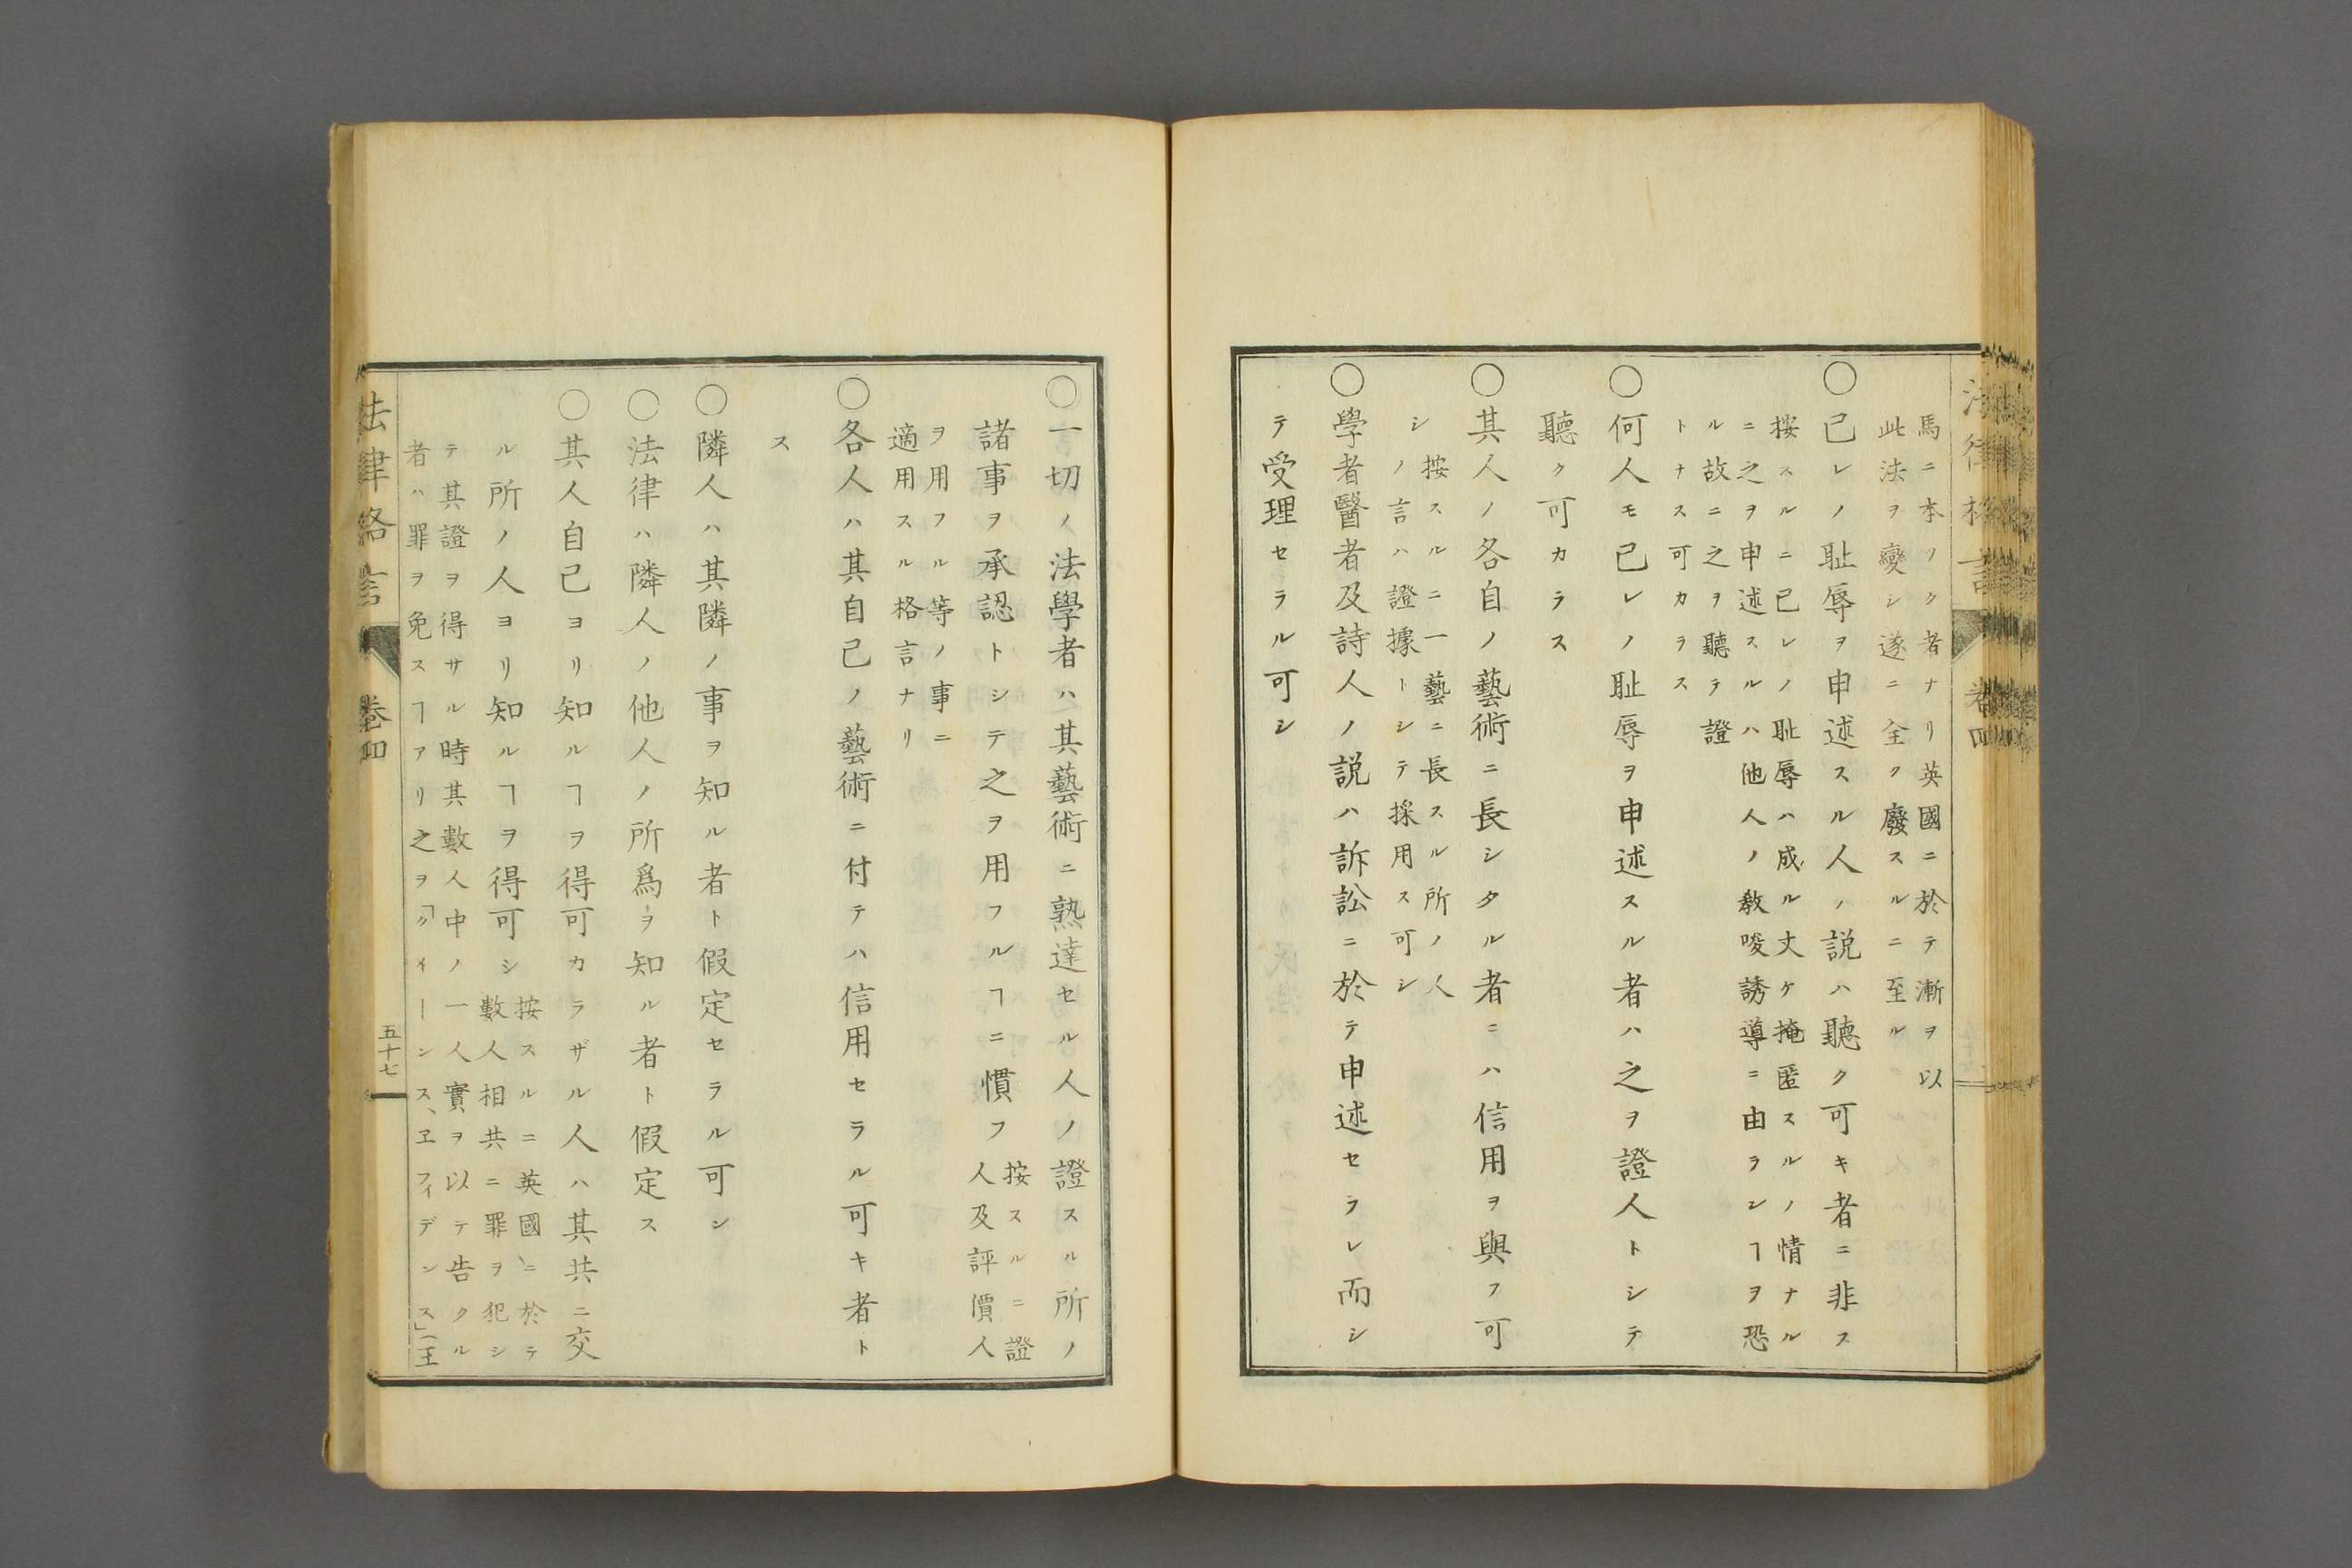 馬ニ本ツク者ナリ英國ニ於テ漸ヲ以
此法ヲ變シ遂ニ全ク廢スルニ至ル
〇己レノ耻辱ヲ申述スル人ノ説ハ聽ク可キ者ニ非ス
按スルニ己レノ耻辱ハ成ル丈ケ掩匿スルノ情ナル
ニ之ヲ申述スルハ他人ノ敎唆誘導ニ由ランヿヲ恐
ル故ニ之ヲ聽テ證
トナス可カラス
〇何人モ己レノ耻辱ヲ申述スル者ハ之ヲ證人トシテ
聽ク可カラス
〇其人ノ各自ノ藝術ニ長シタル者ニハ信用ヲ與フ可
シ
按スルニ一藝ニ長スル所ノ人
ノ言ハ證據トシテ採用ス可シ
〇學者醫者及詩人ノ説ハ訴訟ニ於テ申述セラレ而シ
テ受理セラル可シ
〇一切ノ法學者ハ其藝術ニ熟達セル人ノ證スル所ノ
諸事ヲ承認トシテ之ヲ用フルヿニ慣フ
按スルニ證
人及評價人
ヲ用フル等ノ事ニ
適用スル格言ナリ
〇各人ハ其自己ノ藝術ニ付テハ信用セラル可キ者ト
ス
〇隣人ハ其隣ノ事ヲ知ル者ト假定セラル可シ
〇法律ハ隣人ノ他人ノ所爲ヲ知ル者ト假定ス
〇其人自己ヨリ知ルヿヲ得可カラザル人ハ其共ニ交
ル所ノ人ヨリ知ルヿヲ得可シ
按スルニ英國ニ於テ
數人相共ニ罪ヲ犯シ
テ其證ヲ得サル時其數人中ノ一人實ヲ以テ告クル
者ハ罪ヲ免スヿアリ之ヲ「クイーンス、ヱフィデンス」(王
法律格言 卷四
五十七